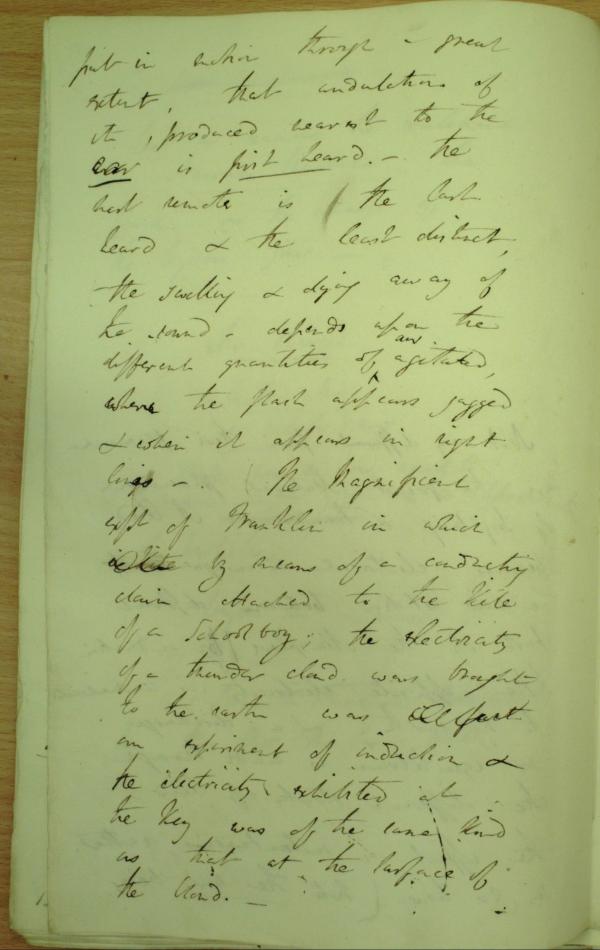 put in motion through a great
extent, that undulation of
it, produced nearest to the
ear is first heard. - The
most remote is the last
heard & the least distinct,
the swelling & dying away of
the sound - depends upon the
different quantities of air agitated,
where the flash appears jagged
& when it appears in right
lines -. The Magnificent
expt of Franklin in which
by means of a conducting
chain attached to the Kite
of a School boy; the electricity
of a thunder cloud was brought
to the earth was
an experiment of induction &
the electricity exhibited at
the Key was of the same kind
as that at the Surface of
the Cloud. -